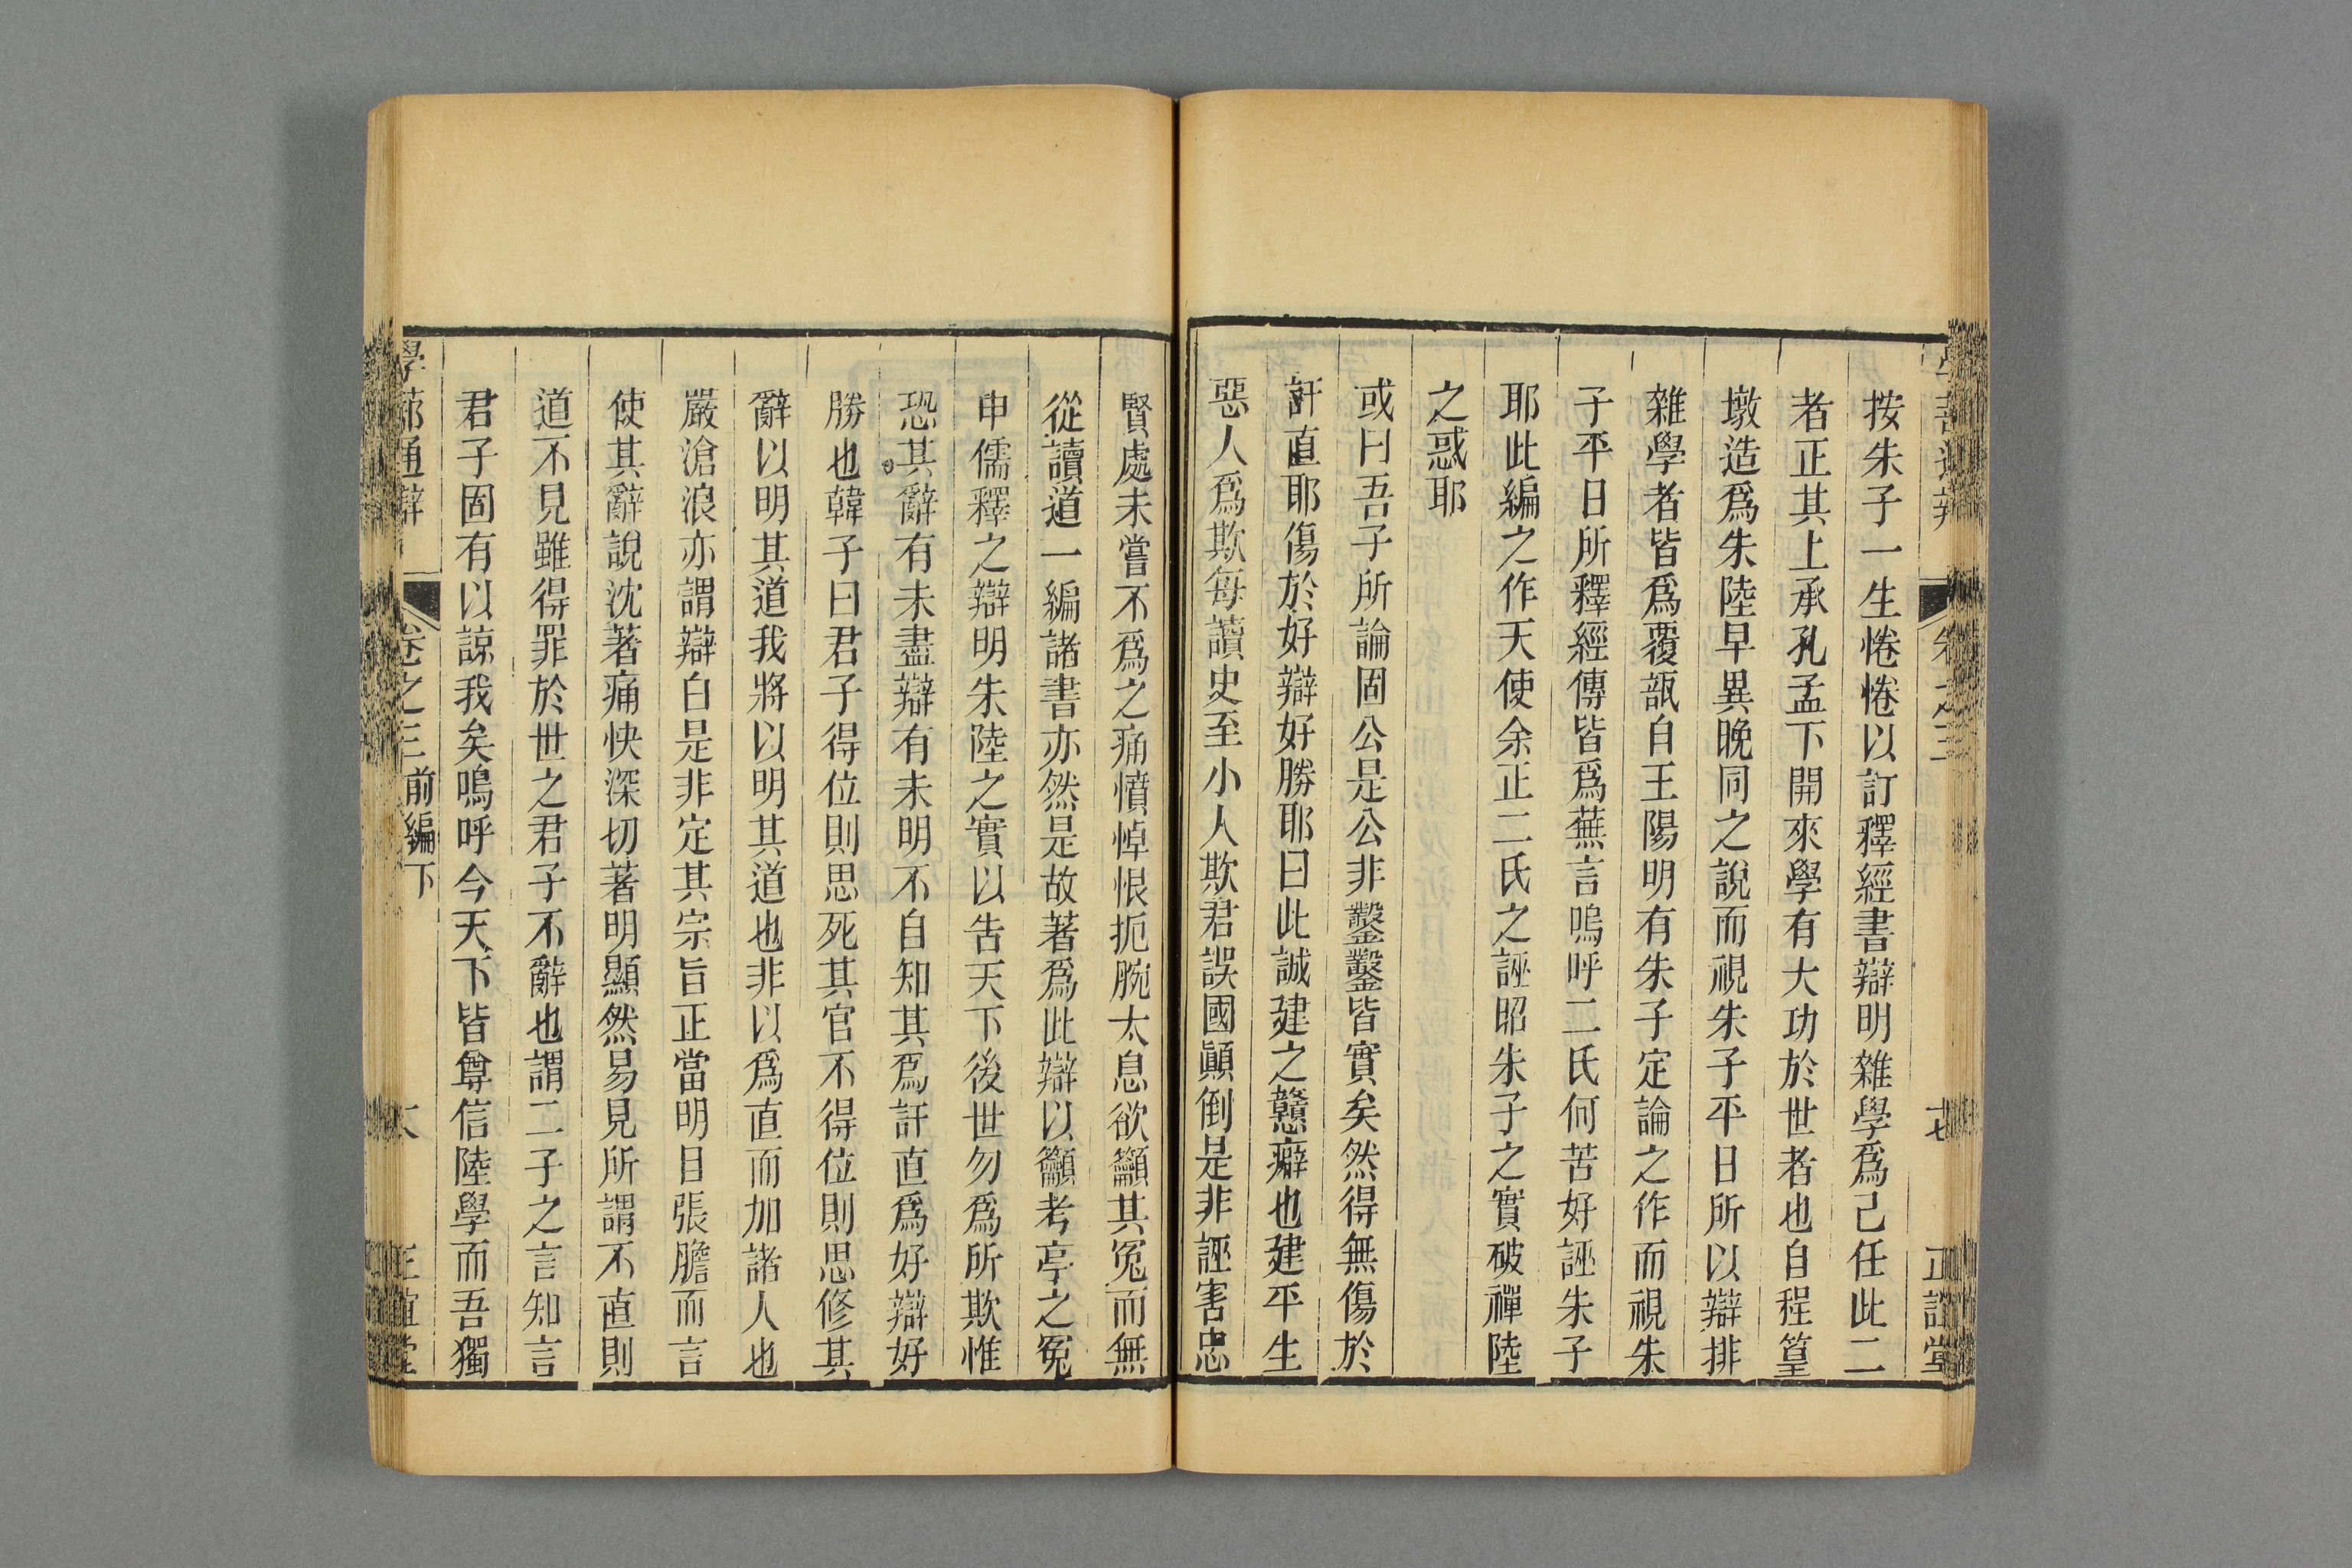 按朱子一生惓惓以訂釋經書辯明雜學爲己任此二
者正其上承孔孟下開來學有大功於世者也自程篁
墩造爲朱陸早異晚同之說而視朱子平日所以辯排
雜學者皆爲覆瓿自王陽明有朱子定論之作而視朱
子平日所釋經傳皆爲蕪言嗚呼二氏何苦好誣朱子
耶此編之作天使余正二氏之誣昭朱子之實破禪陸
之惑耶
或曰吾子所論固公是公非鑿鑿皆實矣然得無傷於
訐直耶傷於好辯好勝耶曰此誠建之戇癖也建平生
惡人爲欺每讀史至小人欺君誤國顛倒是非誣害忠
賢處未嘗不爲之痛憤悼恨扼腕太息欲籲其冤而無
從讀道一編諸書亦然是故著爲此辯以籲考亭之冤
申儒釋之辯明朱陸之實以告天下後世勿爲所欺惟
恐其辭有未盡辯有未明不自知其爲訐直爲好辯好
勝也韓子曰君子得位則思死其官不得位則思修其
辭以明其道我將以明其道也非以爲直而加諸人也
嚴滄浪亦謂辯白是非定其宗旨正當明目張膽而言
使其辭說沈著痛快深切著明顯然易見所謂不直則
道不見雖得罪於世之君子不辭也謂二子之言知言
君子固有以諒我矣嗚呼今天下皆尊信陸學而吾獨
學蔀通辯 卷之三 前編下 正誼堂